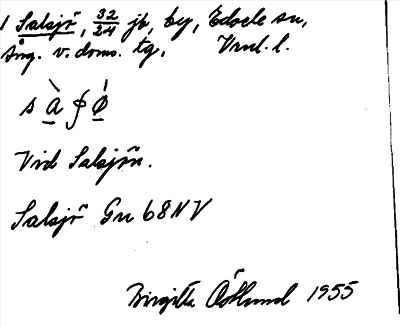 1 Salsjö, 32/24 jb, by, Edsele sn,
Ång. v. doms. tg, Vnl. l.
Vid Salsjön.
Salsjö Gu 68 NV
Birgitta Åöhlund 1955